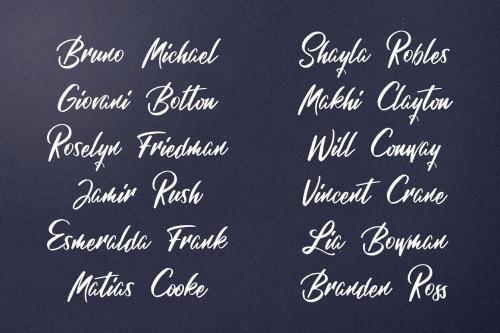 Bruno Michael
Giovani Botton
Roselyn Friedman
Jamir Rush
Esmeralda Frank
Matias Cooke
Shayla Robles
Makhi Clayton
Will Conway
Vincent Crane
Lia Bowman
Branden Ross